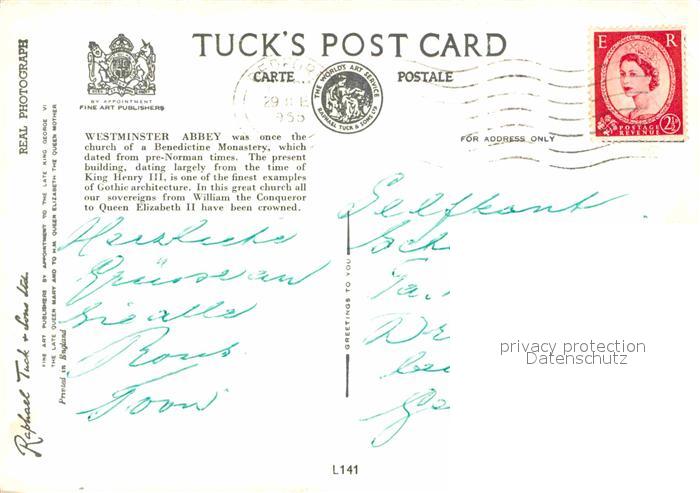 TUCK'S POST CARD
CARTE POSTALE
BY APPOINTMENT
FINE ART PUBLISHERS
THE WORLD'S ART SERVICE
RAPHAEL TUCK & SONS LTD
E R
POSTAGE
REVENUE
2½D
FOR ADDRESS ONLY
REAL PHOTOGRAPH
Raphael Tuck & Sons Ltd.
FINE ART PUBLISHERS BY APPOINTMENT TO THE LATE KING GEORGE VI
THE LATE QUEEN MARY AND TO H.M. QUEEN ELIZABETH THE QUEEN MOTHER
Printed in England
WESTMINSTER ABBEY was once the
church of a Benedictine Monastery, which
dated from pre-Norman times. The present
building, dating largely from the time of
King Henry III, is one of the finest examples
of Gothic architecture. In this great church all
our sovereigns from William the Conqueror
to Queen Elizabeth II have been crowned.
Herzliche
Grüsse an
alle
GREETINGS TO YOU
Selfkant
privacy protection
Datenschutz
L141